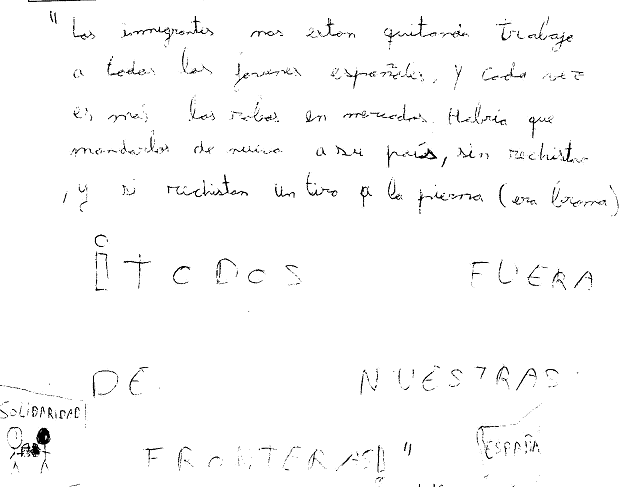 "Los inmigrantes nos estan quitando trabajo
a todos los jovenes españoles, y cada vez
es más los robos en mercados. Habría que
mandarlos de nuevo a su país, sin rechistar
, y si rechistan un tiro a la pierna (era broma)
¡TODOS FUERA
DE NUESTRAS
SOLIDARIDAD
FRONTERAS!"
ESPAÑA